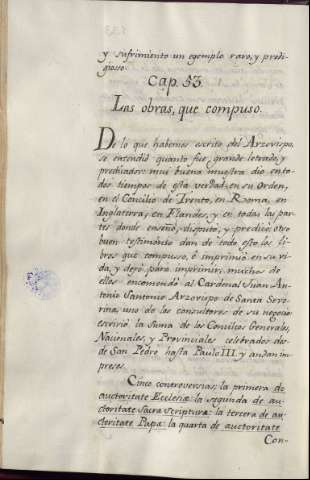 y sufrimiento un exemplo raro, y prodi-
gioso.
Cap. 53.
Las obras, que compuso.
De lo que habemos escrito del Arzovispo,
se entendió quanto fue, grande letrado, y
predicador: mui buena muestra dio en to-
dos tiempos de esta verdad, en su Orden,
en el Concilio de Trento, en Roma, en
Inglaterra, en Flandes, y en todas las par-
tes donde enseñó, disputó, y predicó; otro
buen testimonio dan de todo esto los li-
bros que compuso, è imprimió en su vi-
da, y dejó para imprimir, muchos de
ellos encomendó al Cardenal Juan An-
tonio Santorio Arzovispo de Santa Seve-
rina, uno de los consultores de su negocio:
escrivió la Suma de los Concilios Generales,
Nacionales, y Provinciales celebrados des-
de San Pedro hasta Paulo III. y andan im-
presos.
Cinco controversias; la primera de
auctoritate Ecclesiæ: la segunda de au-
ctoritate Sacra Scriptura: la tercera de au-
ctoritate Papæ: la quarta de auctoritate
Con-